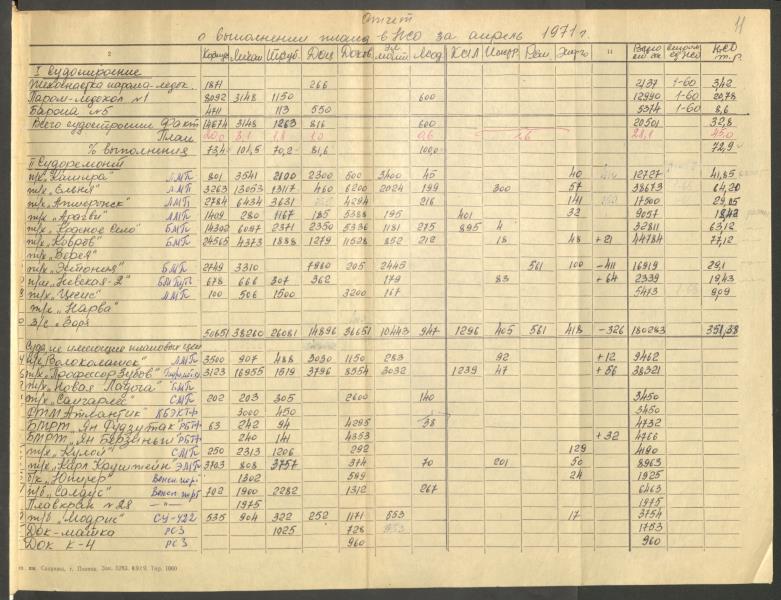 Отчет 11
о выполнении плана в НСО за апрель 1971 г.
2 Корпус Механ Трубн ДОЦ Доков Эл. монт Мал КСЦ Инстр Рем Энерго 11 НСО т. р.
I Судостроение
1871 266 2137 1-60 3,42
Паром-ледокол №1 8092 3148 1150 600 12990 1-60 20,78
Баржа №5 4711 113 550 5374 1-60 8,6
Всего судостроении Факт 14674 3148 1263 816 600 20501 32,8
План 45,0
% выполнения 73,4 101,5 70,2 81,6 100,0 72,9
II Судоремонт
т/х „Кашира" ЛМП 801 3541 2100 2300 500 3400 45 40 12727 41,85
т/х „Ельня" ЛМП 3263 13053 13117 460 6200 2024 199 300 57 38673 64,20
т/х „Апшеронск" ЛМП 2784 6434 3631 4294 216 141 17500 29,05
т/х „Арагви" ЛМП 1409 280 1167 185 5388 195 401 32 9057 18,42
т/х „Красное Село" БМП 14302 6097 2371 2350 5336 1181 275 895 4 32811 63,12
т/х „Ковров" БМП 24565 4373 1888 1279 11528 852 212 18 48 +21 44784 77,12
т/х „Верея"
т/х „Эстония" БМП 2749 3310 7980 205 2445 561 100 -411 16919 29,1
„Невская-2" 678 666 307 362 179 83 +64 2339 19,43
т/х „Цесис" ЛМП 100 506 1500 3200 167 5473 9,09
т/х „Нарва"
з/с „Заря"
50651 38260 26081 14896 36651 10443 947 1296 405 561 418 -326 180283 351,38
Суда, не имеющие плановых цен
т/х „Волоколамск" ЛМП 3500 907 488 3030 1150 283 92 +12 9462
т/х „Профессор Зубов" 3123 16955 1519 3796 8554 3032 1239 47 +56 38321
т/х „Новая Ладога" БМП
т/х „Салгарей" СМП 202 203 305 2600 140 3450
РТМ „Атлантик" КБЭКТФ 3000 450 3450
БМРТ „Ян Фудзутак" РБТФ 63 242 94 4295 38 4732
БМРТ „Ян Берзиньш" РБТФ 240 141 4353 +32 4766
т/х „Кулой" СМП 250 2313 1206 292 129 4190
т/х „Карл Кауштейн" ЭМП 3703 808 3757 374 70 201 50 8963
б/к „Юпитер" Вентспилс 1302 599 24 1925
т/б „Салдус" 702 1900 2282 1312 267 6463
Плавкран №28 —"— 1975 1975
т/б „Модрис" СУ-422 535 904 322 252 1171 553 17 3754
Док-матка РСЗ 1025 728 1753
Док К-4 РСЗ 960 960